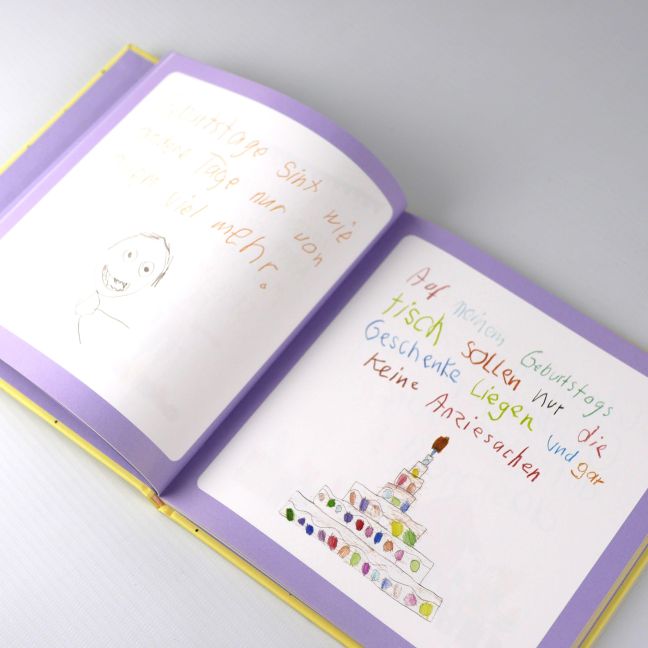 Geburtstage Sint wie
andere Tage nur von
viel mehr.
Auf meinem Geburtstags
tisch sollen nur die
Geschenke Liegen und gar
Keine Anziesachen